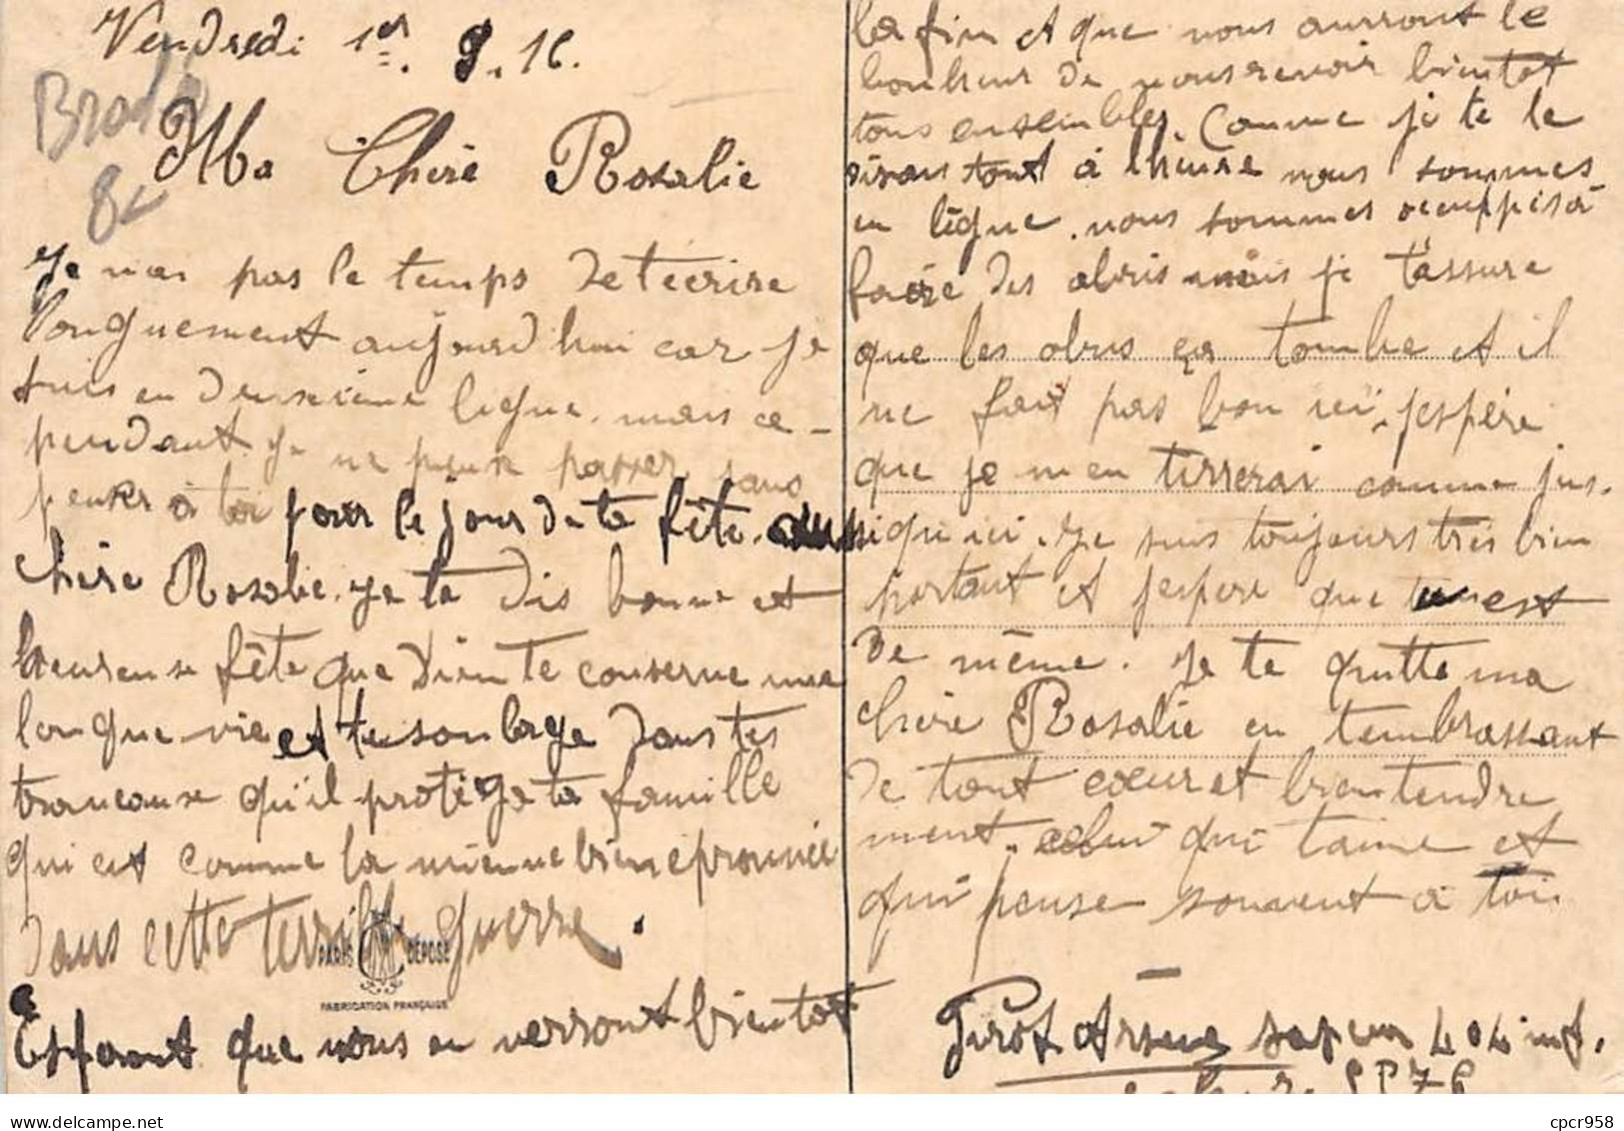 Vendredi 1er. 9.16.
Brod
8€
Ma Chère Rosalie
Je nai pas le temps de técrire
longuement aujourd hui car je
suis en deuxième ligne. mais ce-
pendant je ne peux passer sans
penser à toi pour le jour de ta fête. aussi
chère Rosalie. je te dis bonne et
heureuse fête que Dieu te conserve une
longue vie et te soulage dans tes
travause qu'il protège ta famille
qui est comme la mienne bien éprouvée
dans cette terrible guerre.
PARIS DÉPOSÉ
FABRICATION FRANÇAISE
Espérant que nous en verront bientot
la fin et que nous aurront le
bonheur de nous revoir bientot
tous ensembles. Comme je te le
disais tout à lheure nous sommes
en ligne. nous sommes occuppés à
faire des abris mais je t'assure
que les obus ça tombe et il
ne fait pas bon ici, jespère
que je men tirrerai comme jus-
qu ici. Je suis toujours très bien
portant et jespere que tu est
de même. Je te quitte ma
chère Rosalie en tembrassant
de tout coeur et bien tendre
ment. celui qui taime et
qui pense souvent à toi.
Pirot Arsène sapeur 404 inf.
cpcr958